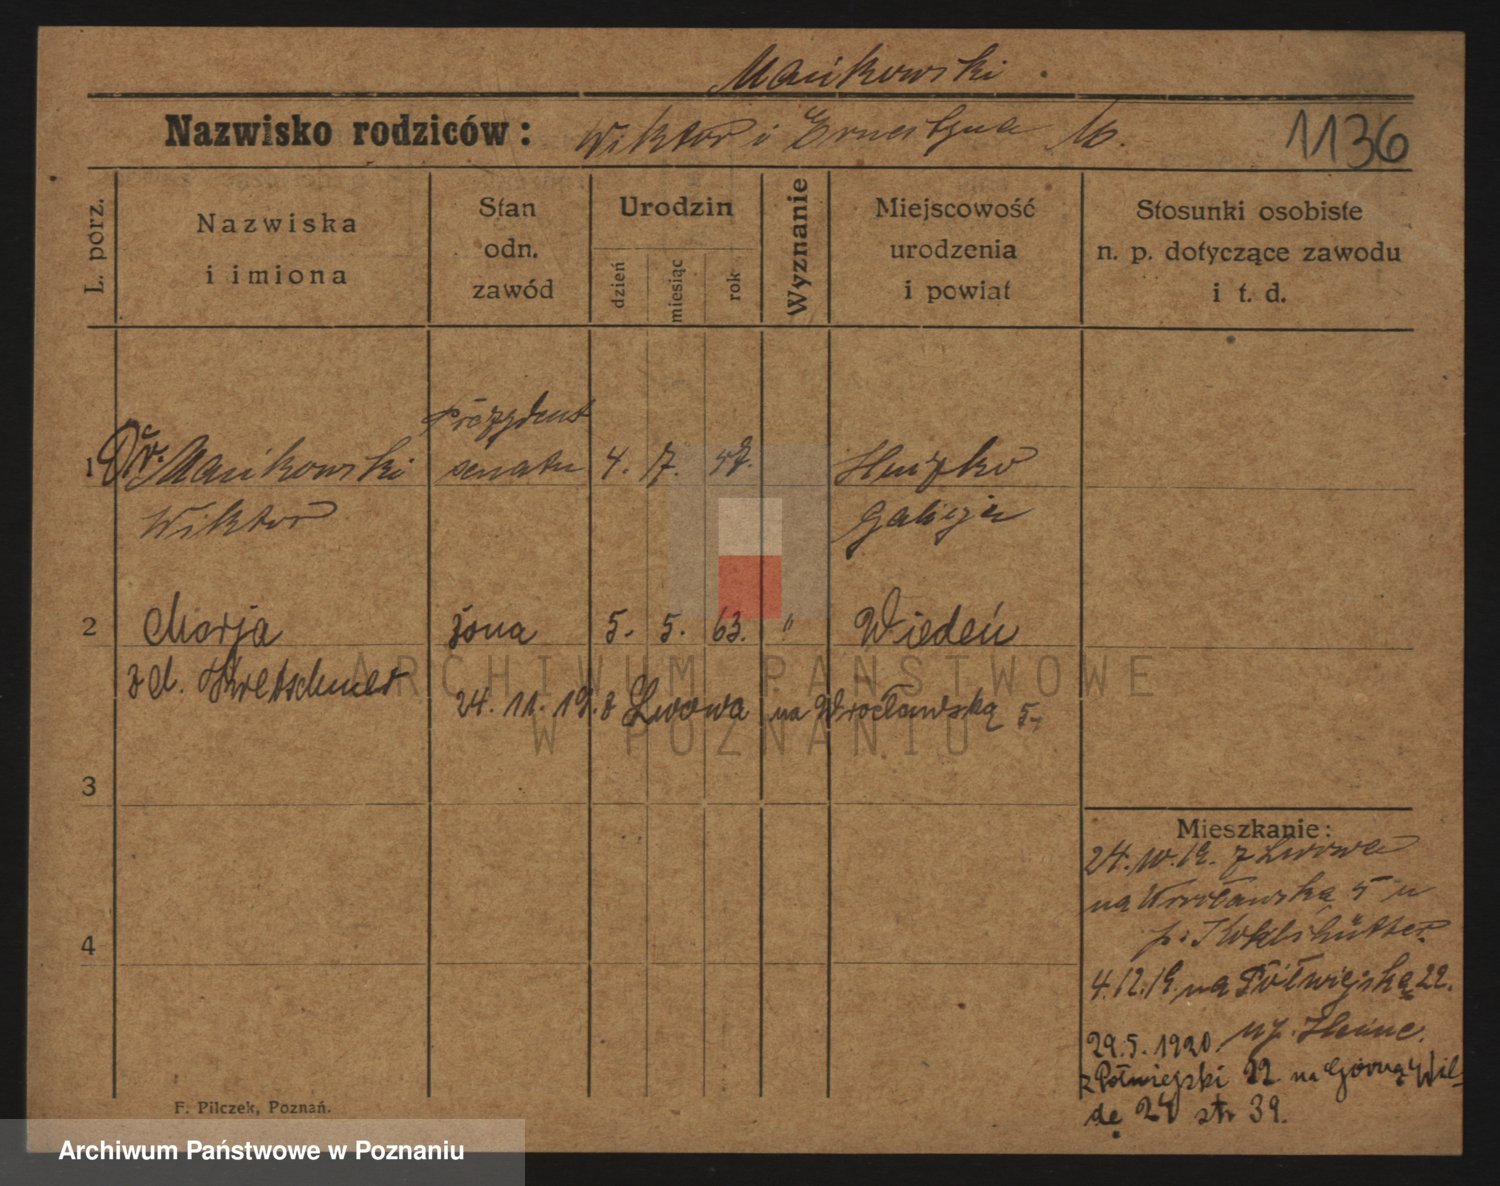 Mańkowski
Nazwisko rodziców: Wiktor i Ernestyna M. 1136
L. porz.
Nazwiska
i imiona
Stan
odn.
zawód
Urodzin
dzień
miesiąc
rok
Wyznanie
Miejscowość
urodzenia
i powiat
Stosunki osobiste
n. p. dotyczące zawodu
i t. d.
Prezydent
1 Dr. Mańkowski senatu 4. 7.
Wiktor Galicja
2 Marja żona 5. 5. 63. " Wiedeń
z d. Kretschmer
24. 11. 19. z Lwowa na Wrocławską 5.
3
Mieszkanie:
24. 10. 19. z Lwowa
na Wrocławską 5 u
p.
4
4. 12. 19. na Półwiejską 22.
29. 5. 1920.
z Półwiejski 22 na Górną Wil-
dę 24 str 39.
F. Pilczek, Poznań.
ARCHIWUM PAŃSTWOWE
W POZNANIU
Archiwum Państwowe w Poznaniu